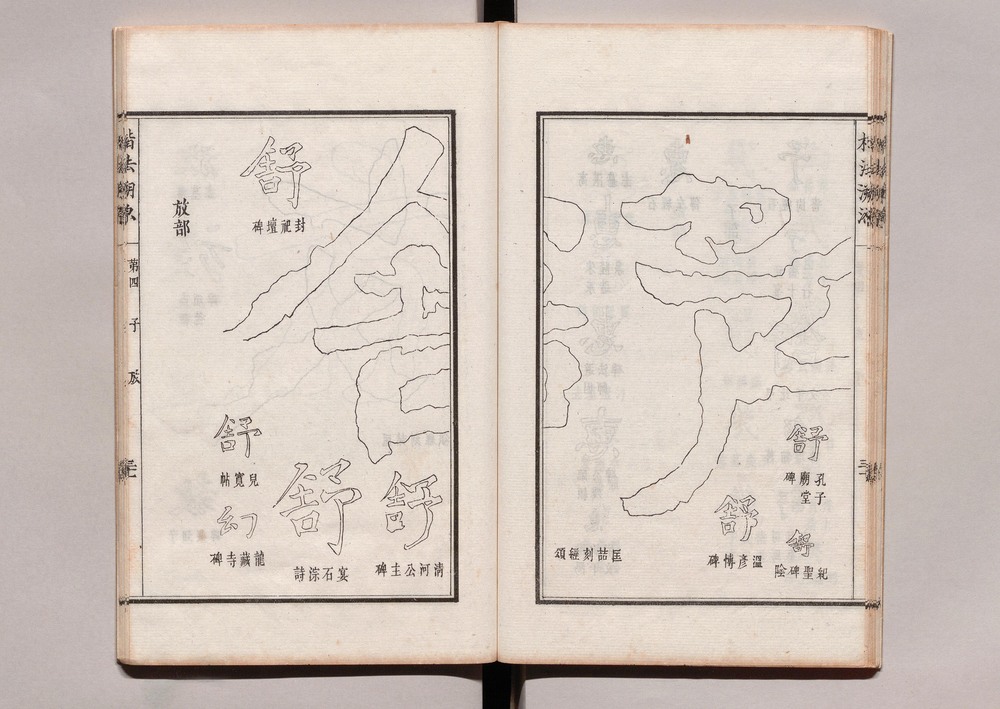 楷法溯源
舒
孔子廟堂碑
舒
紀聖碑陰
舒
溫彥博碑
舒
匡喆刻經頌
舒
清河公主碑
舒
宴石淙詩
舒
封祀壇碑
舒
兒寬帖
幻
龍藏寺碑
放部
楷法溯源
第四
子
放